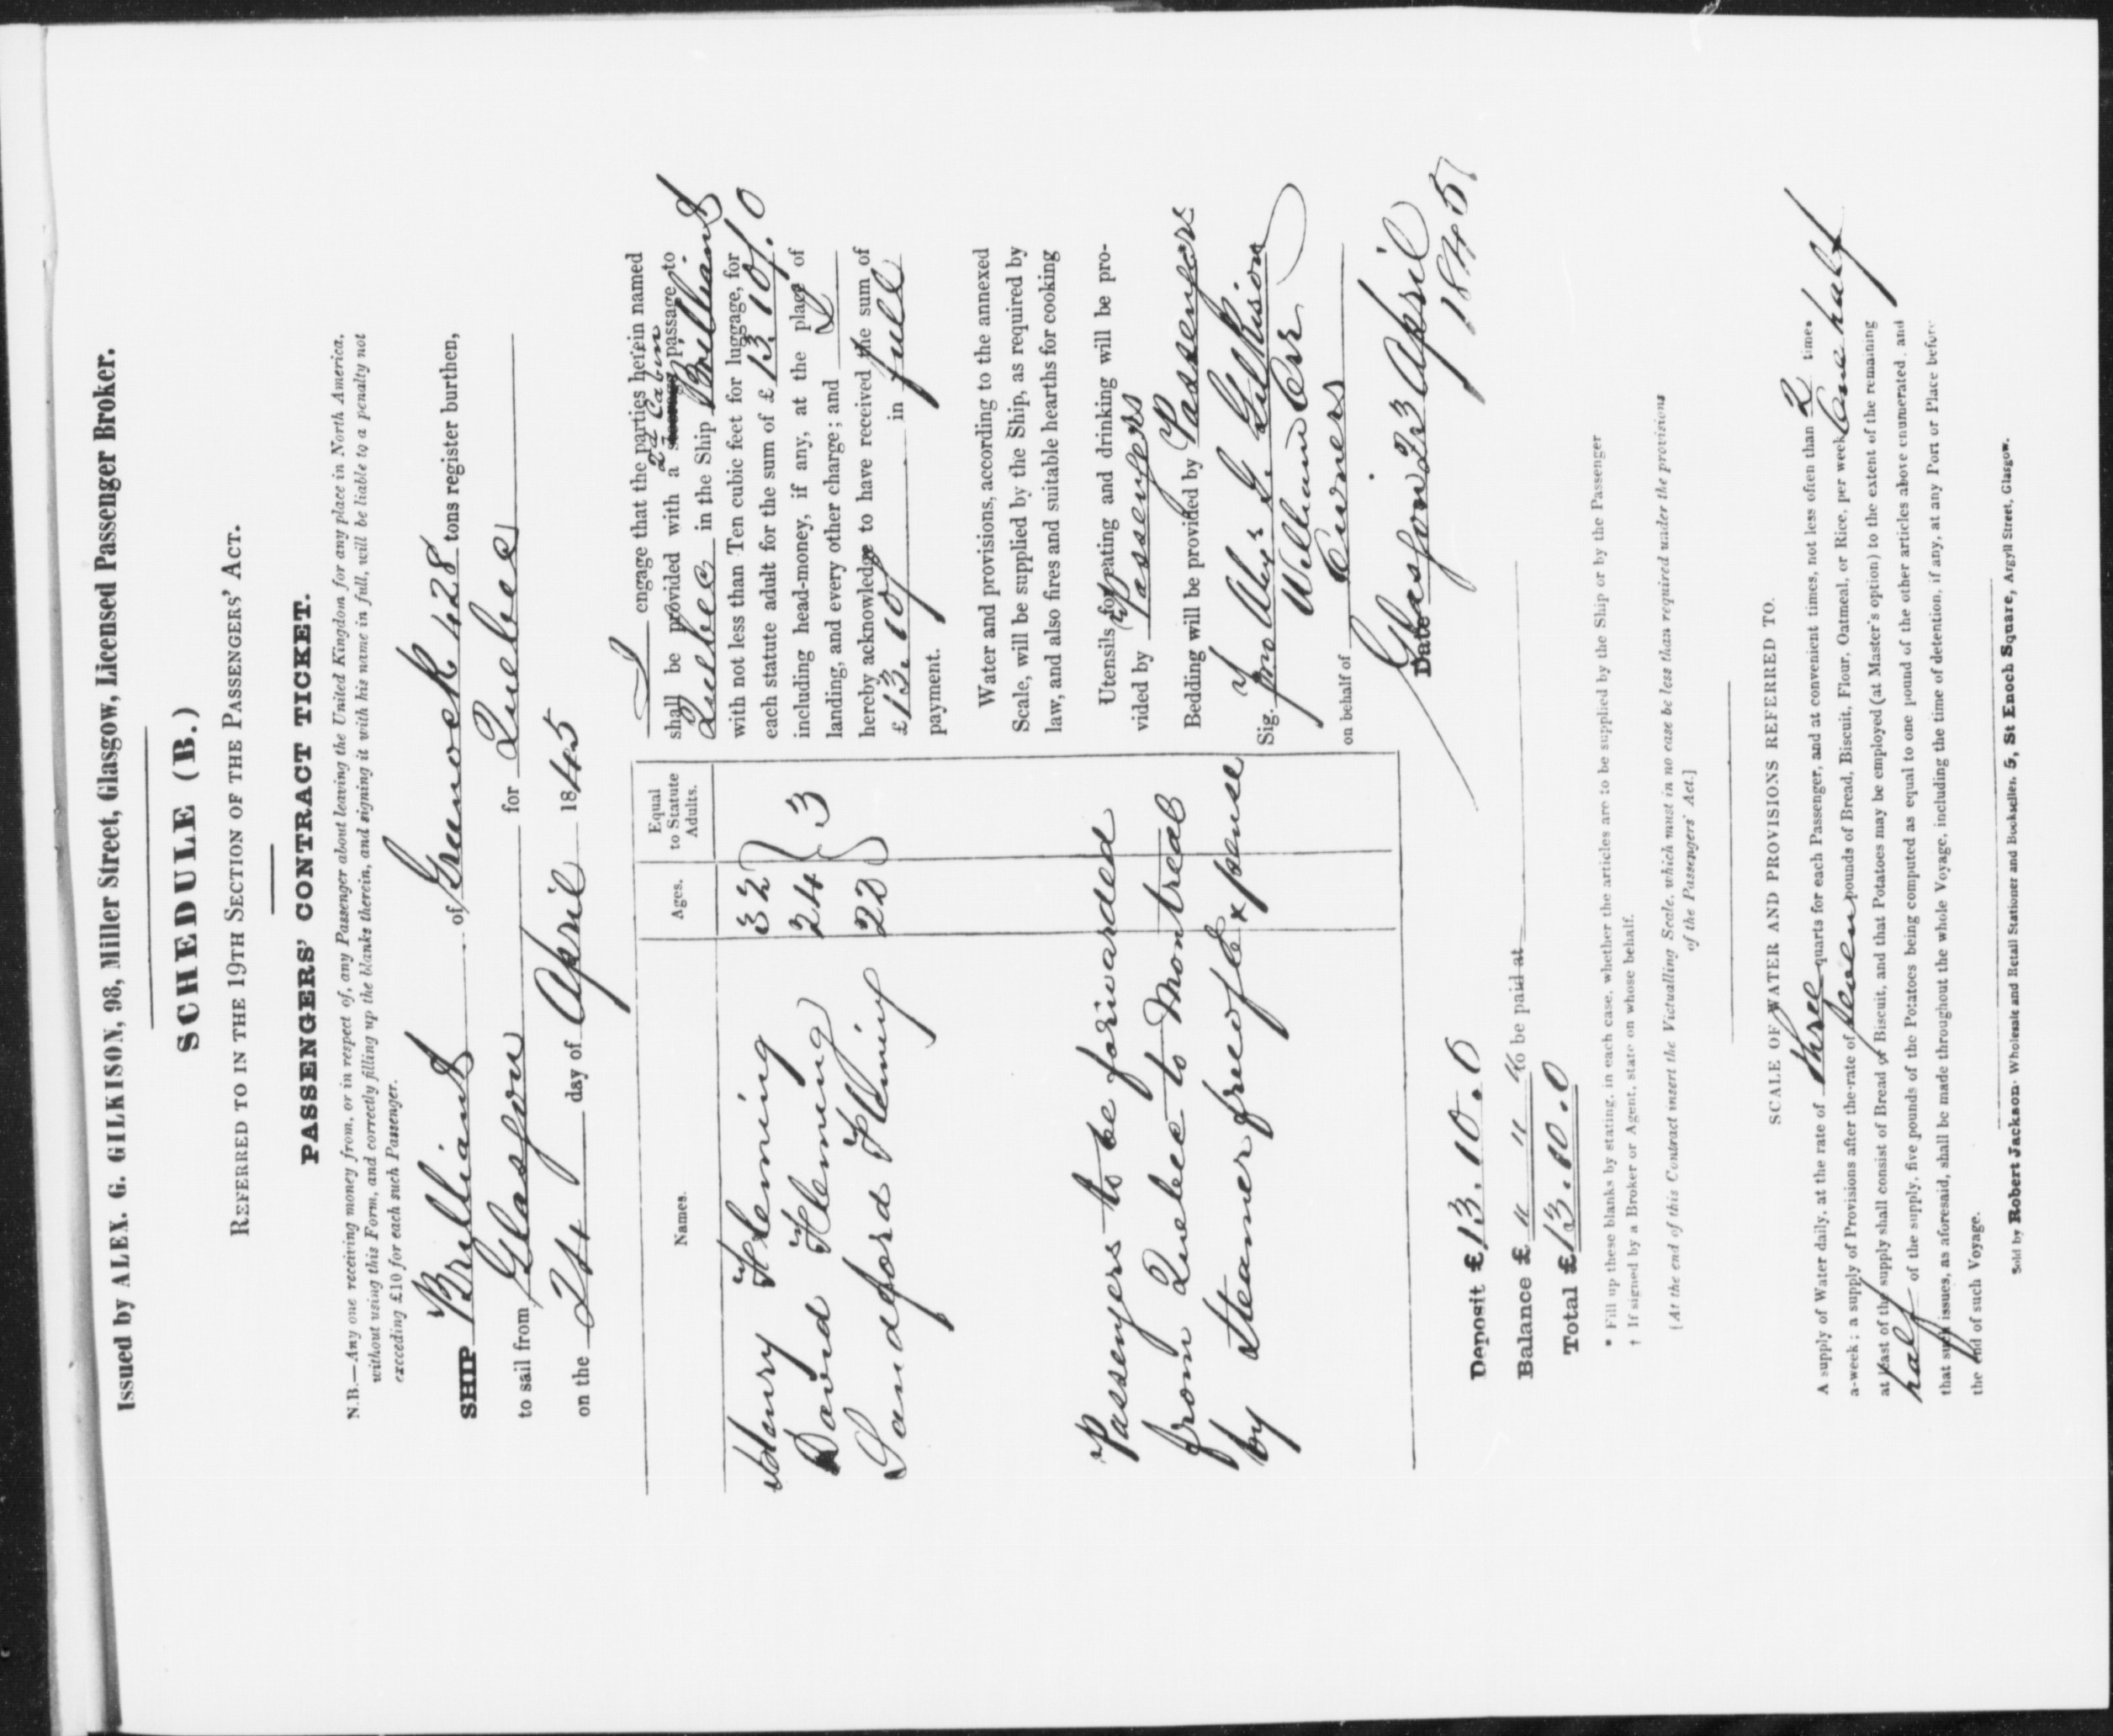 Issued by ALEX. G. GILKISON, 98, Miller Street, Glasgow, Licensed Passenger Broker.
SCHEDULE (B.)
REFERRED TO IN THE 19TH SECTION OF THE PASSENGERS' ACT.
PASSENGERS' CONTRACT TICKET.
N.B.—Any one receiving money from, or in respect of, any Passenger about leaving the United Kingdom for any place in North America,
without using this Form, and correctly filling up the blanks therein, and signing it with his name in full, will be liable to a penalty not
exceeding £10 for each such Passenger.
SHIP Brilliant of Greenock 428 tons register burthen,
to sail from Glasgow for Quebec
on the 24 day of April 1845
Names. Ages. Equal to Statute Adults.
Henry Fleming 32
David Fleming 24 3
Sandeford Fleming 22
Passengers to be forwarded
from Quebec to Montreal
by steamer free of expense
I engage that the parties herein named
2d Cabin
shall be provided with a steerage passage to
Quebec in the Ship Brilliant
with not less than Ten cubic feet for luggage, for
each statute adult for the sum of £13.10/.0
including head-money, if any, at the place of
landing, and every other charge; and I
hereby acknowledge to have received the sum of
£13.10/ in full
payment.
Water and provisions, according to the annexed
Scale, will be supplied by the Ship, as required by
law, and also fires and suitable hearths for cooking
Utensils for eating and drinking will be pro-
vided by Passengers
Bedding will be provided by Passengers
Sig. pro Alexr G. Gilkison
William Orr
on behalf of Owners
Date Glasgow 23 April
1845
Deposit £13.10.0
Balance £ " " " to be paid at
Total £13.10.0
* Fill up these blanks by stating, in each case, whether the articles are to be supplied by the Ship or by the Passenger
† If signed by a Broker or Agent, state on whose behalf.
[At the end of this Contract insert the Victualling Scale, which must in no case be less than required under the provisions
of the Passengers' Act.]
SCALE OF WATER AND PROVISIONS REFERRED TO.
A supply of Water daily, at the rate of three quarts for each Passenger, and at convenient times, not less often than 2 times
a-week; a supply of Provisions after the rate of seven pounds of Bread, Biscuit, Flour, Oatmeal, or Rice, per week One half
at least of the supply shall consist of Bread or Biscuit, and that Potatoes may be employed (at Master's option) to the extent of the remaining
half of the supply, five pounds of the Potatoes being computed as equal to one pound of the other articles above enumerated, and
that such issues, as aforesaid, shall be made throughout the whole Voyage, including the time of detention, if any, at any Port or Place before
the end of such Voyage.
Sold by Robert Jackson Wholesale and Retail Stationer and Bookseller, 5, St Enoch Square, Argyll Street, Glasgow.